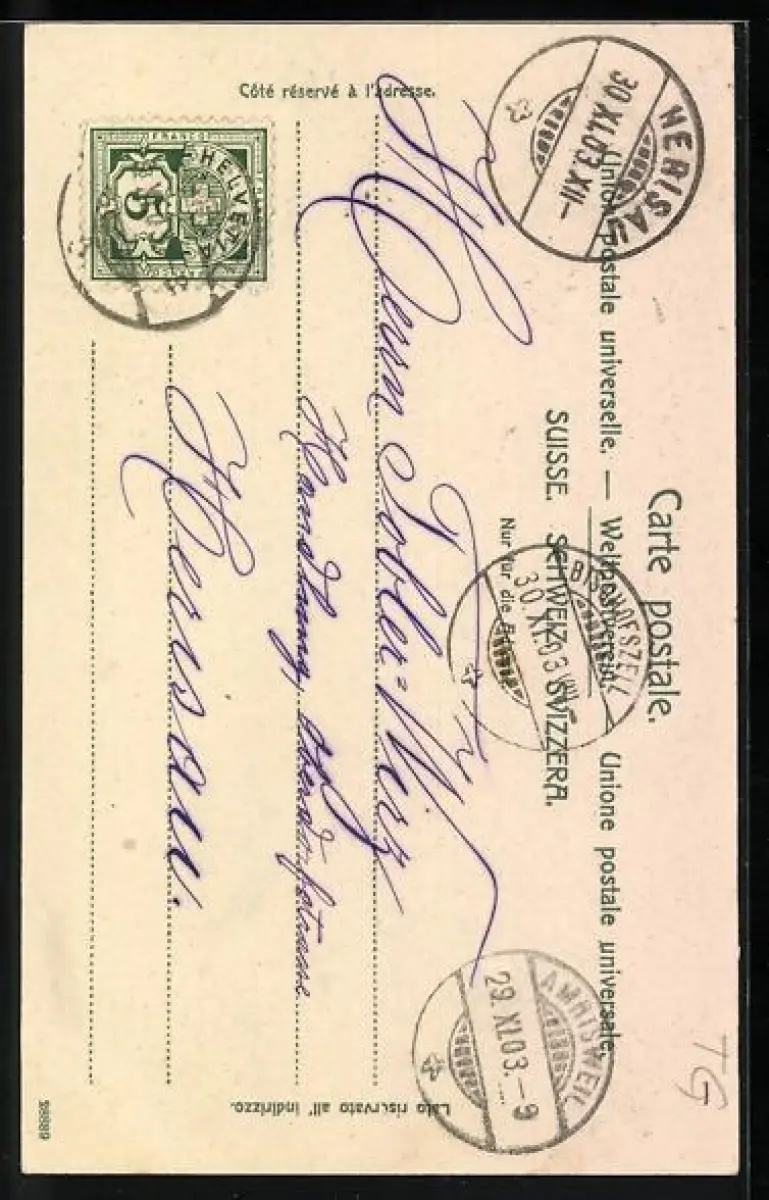 Carte postale.
Union postale universelle. — Weltpostverein. — Unione postale universale.
SUISSE. SCHWEIZ. SVIZZERA.
Nur für die
Côté réservé à l'adresse.
Lato riservato all' indirizzo.
HERISAU
30.XI.03.XII—
BISCHOFSZELL
30.XI.03.VIII—
AMRISWEIL
29.XI.03.—9
FRANCO
HELVETIA
5
Herrn Tobler-Werz
Handlung
Herisau.
TG